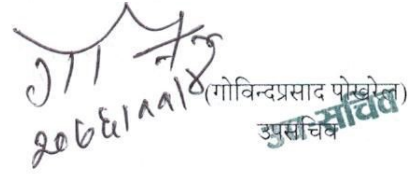 २०७६।११।४
(गोविन्दप्रसाद पोखरेल)
उपसचिव